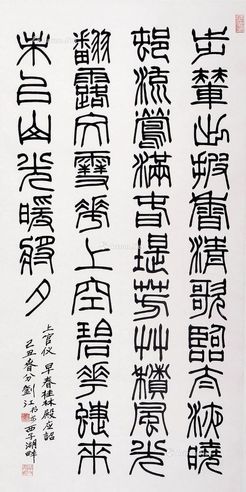 步輦出披香清歌臨太液曉
樹流鶯滿春堤芳草積風光
翻露文雪華上空碧華蝶來
未已山光暖將夕
上官仪 早春桂林殿应詔
己丑春分劉江於西子湖畔